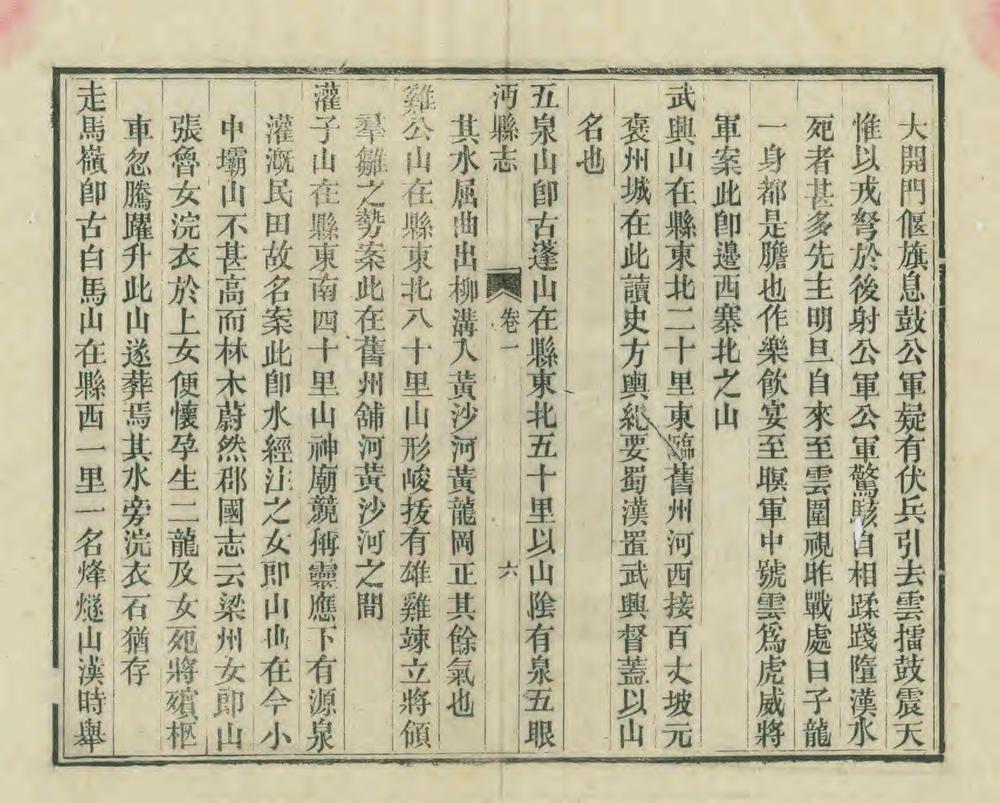 大開門偃旗息鼓公軍疑有伏兵引去雲擂鼓震天
惟以戎弩於後射公軍公軍驚駭自相蹂踐墮漢水
死者甚多先主明旦自來至雲圍視昨戰處曰子龍
一身都是膽也作樂飲宴至暝軍中號雲為虎威將
軍案此卽邊西寨北之山
武興山在縣東北二十里東臨舊州河西接百丈坡元
褒州城在此讀史方輿紀要蜀漢置武興督蓋以山
名也
五泉山卽古蓬山在縣東北五十里以山陰有泉五眼
沔縣志
卷一
六
其水屈曲出柳溝入黃沙河黃龍岡正其餘氣也
雞公山在縣東北八十里山形峻拔有雄雞竦立將領
羣雛之勢案此在舊州舖河黃沙河之間
灌子山在縣東南四十里山神廟競稱靈應下有源泉
灌漑民田故名案此卽水經注之女郎山也在今小
中壩山不甚高而林木蔚然郡國志云梁州女郎山
張魯女浣衣於上女便懷孕生二龍及女死將殯柩
車忽騰躍升此山遂葬焉其水旁浣衣石猶存
走馬嶺卽古白馬山在縣西一里一名烽燧山漢時舉